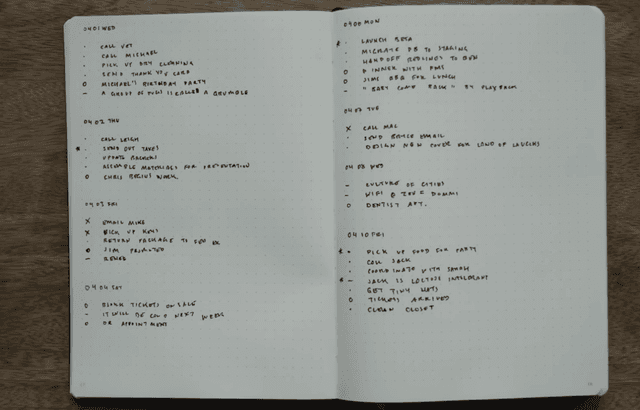 04 01 WED
· CALL VET
· CALL MICHAEL
· PICK UP DRY CLEANING
· SEND THANK YOU CARD
o MICHAEL'S BIRTHDAY PARTY
– A GROUP OF PUGS IS CALLED A GRUMBLE
04 02 THU
· CALL LEIGH
* · SEND OUT TAXES
· UPDATE BACKERS
· ASSEMBLE MATERIALS FOR PRESENTATION
o CHRIS BEGINS WORK
04 03 FRI
X EMAIL MIKE
X PICK UP KEYS
· RETURN PACKAGE TO FED EX
o JIM PROMOTED
–
04 04 SAT
o BJORK TICKETS ON SALE
– IT WILL BE COLD NEXT WEEK
o DR APPOINTMENT
04 06 MON
* · LAUNCH BETA
· MIGRATE DB TO STAGING
· HANDOFF REDLINES TO BEN
o DINNER WITH
o JIM BBQ FOR LUNCH
– "BABY COME BACK" BY PLAYER
04 07 TUE
X CALL MAC
· SEND EMAIL
· DESIGN NEW COVER FOR LAND OF LAUGHS
04 08 WED
– CULTURE OF CITIES
– WIFI @
o DENTIST APT.
04 10 FRI
* · PICK UP FOOD FOR PARTY
· CALL JACK
· COORDINATE WITH SARAH
* – JACK IS LACTOSE INTOLERANT
· GET TINY HATS
o TICKETS ARRIVED
· CLEAN CLOSET